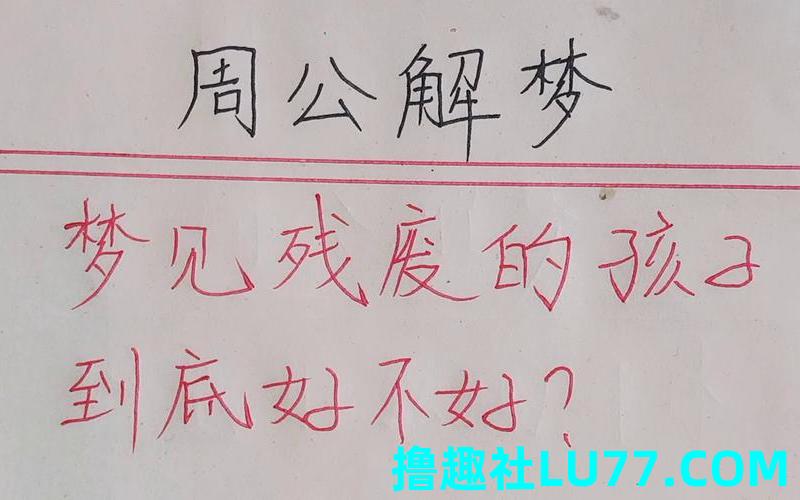 周公解梦
梦见残废的孩子
到底好不好?
撸趣社LU77.COM